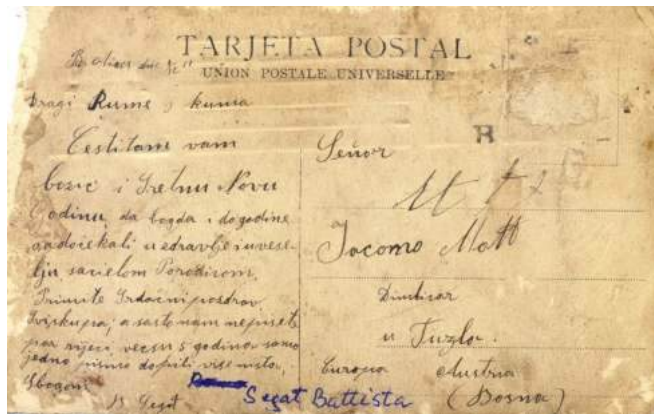 TARJETA POSTAL
UNION POSTALE UNIVERSELLE
Dragi Kume i kuma
Čestitamo vam
bozic i Sretnu Novu
Godinu, da bogda i dogodine
dočekali u zdravlje i uvese-
lju sa cielom Porodicom,
Primite Srdačni pozdrav
Svi skupa, a sašto nam nepisete
par riječi većsu 5 godina samo
jedno pismo dobiti vise ništa,
Sbogom
B Segat
Segat Battista
Señor
R
Jacomo Mott
Dimničar
u Tuzla.
Europa Austria
(Bosna)